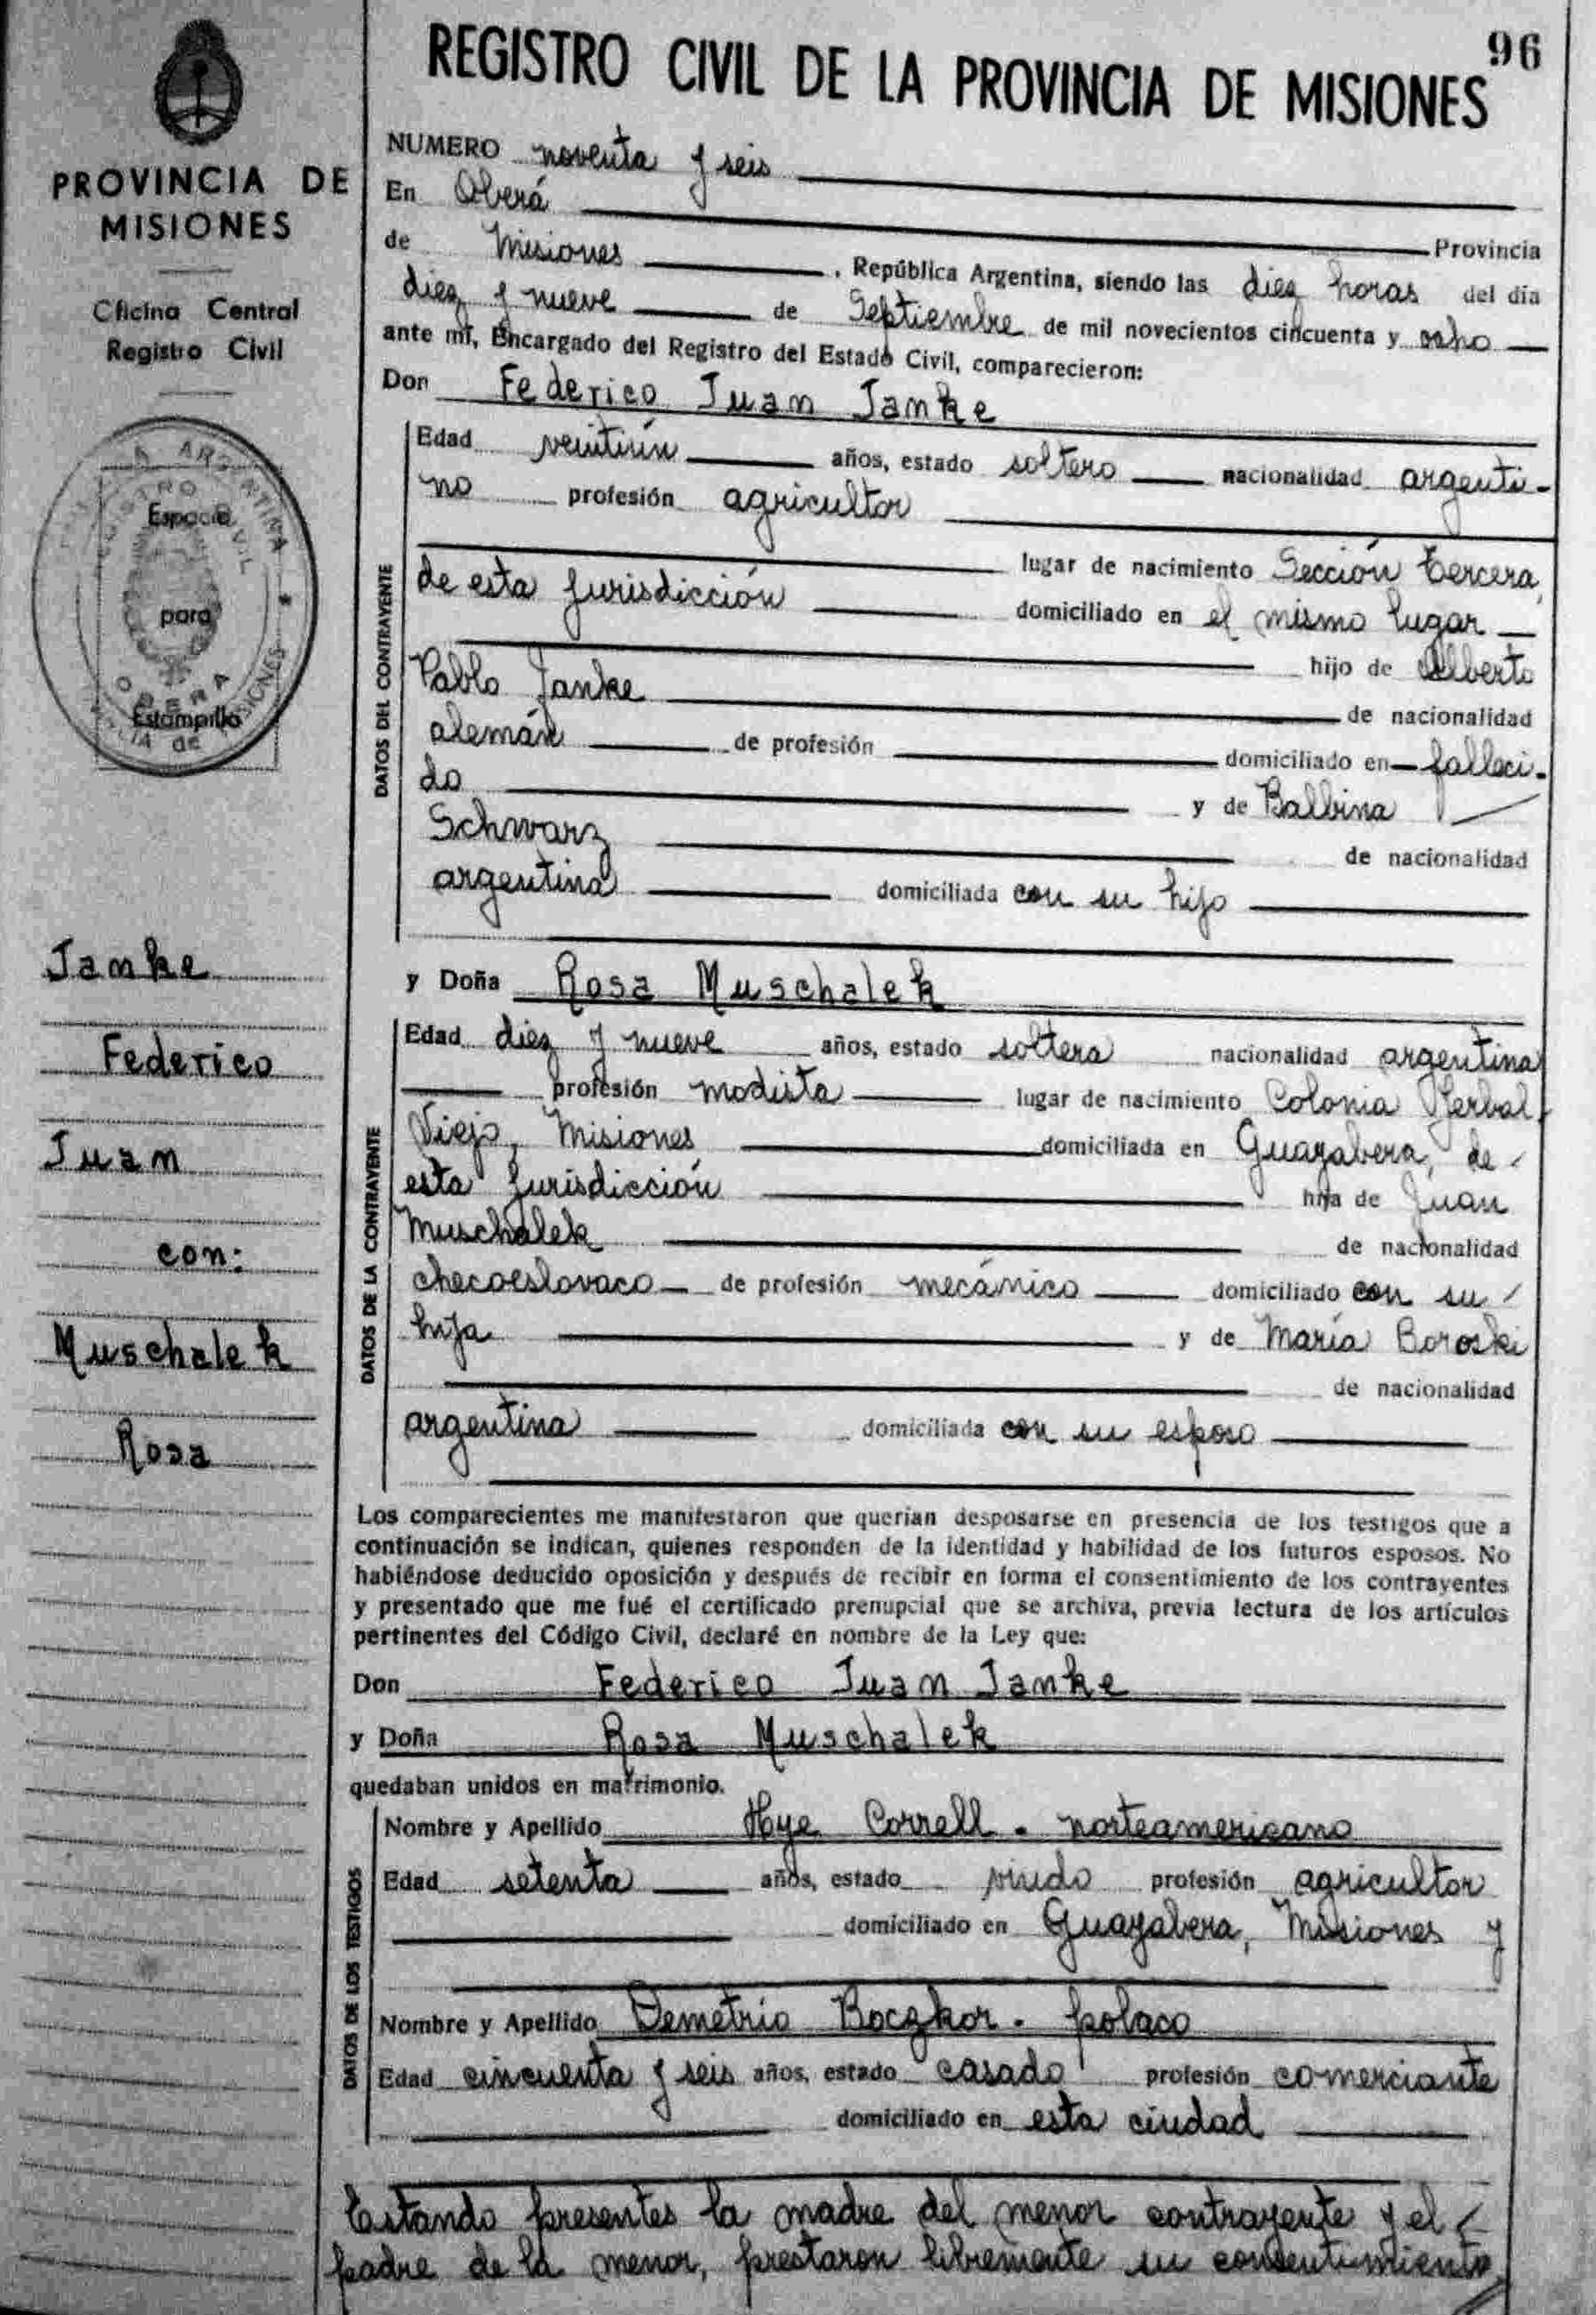 96
REGISTRO CIVIL DE LA PROVINCIA DE MISIONES
PROVINCIA DE
MISIONES
Oficina Central
Registro Civil
ARGENTINA
REGISTRO CIVIL
Espacio
para
Estampilla
OBERA
MISIONES
Janke
Federico
Juan
con:
Muschalek
Rosa
NUMERO noventa y seis
En Oberá Provincia
de Misiones, República Argentina, siendo las diez horas del día
diez y nueve de Septiembre de mil novecientos cincuenta y ocho
ante mí, Encargado del Registro del Estado Civil, comparecieron:
Don Federico Juan Janke
DATOS DEL CONTRAYENTE
Edad veintiún años, estado soltero nacionalidad argenti-
no profesión agricultor
lugar de nacimiento Sección tercera,
de esta jurisdicción domiciliado en el mismo lugar
hijo de Alberto
Pablo Janke de nacionalidad
alemán de profesión domiciliado en falleci-
do y de Balbina
Schwarz de nacionalidad
argentina domiciliada con su hijo
y Doña Rosa Muschalek
DATOS DE LA CONTRAYENTE
Edad diez y nueve años, estado soltera nacionalidad argentina
profesión modista lugar de nacimiento Colonia Yerbal
Viejo, Misiones domiciliada en Guayabera, de
esta jurisdicción hija de Juan
Muschalek de nacionalidad
checoeslovaco de profesión mecánico domiciliado con su
hija y de María Boroski
de nacionalidad
argentina domiciliada con su esposo
Los comparecientes me manifestaron que querían desposarse en presencia de los testigos que a
continuación se indican, quienes responden de la identidad y habilidad de los futuros esposos. No
habiéndose deducido oposición y después de recibir en forma el consentimiento de los contrayentes
y presentado que me fué el certificado prenupcial que se archiva, previa lectura de los artículos
pertinentes del Código Civil, declaré en nombre de la Ley que:
Don Federico Juan Janke
y Doña Rosa Muschalek
quedaban unidos en matrimonio.
DATOS DE LOS TESTIGOS
Nombre y Apellido Hye Correll - norteamericano
Edad setenta años, estado viudo profesión agricultor
domiciliado en Guayabera, Misiones y
Nombre y Apellido Demetrio Boczkor - polaco
Edad cincuenta y seis años, estado casado profesión comerciante
domiciliado en esta ciudad
Estando presentes la madre del menor contrayente y el
padre de la menor, prestaron libremente su consentimiento